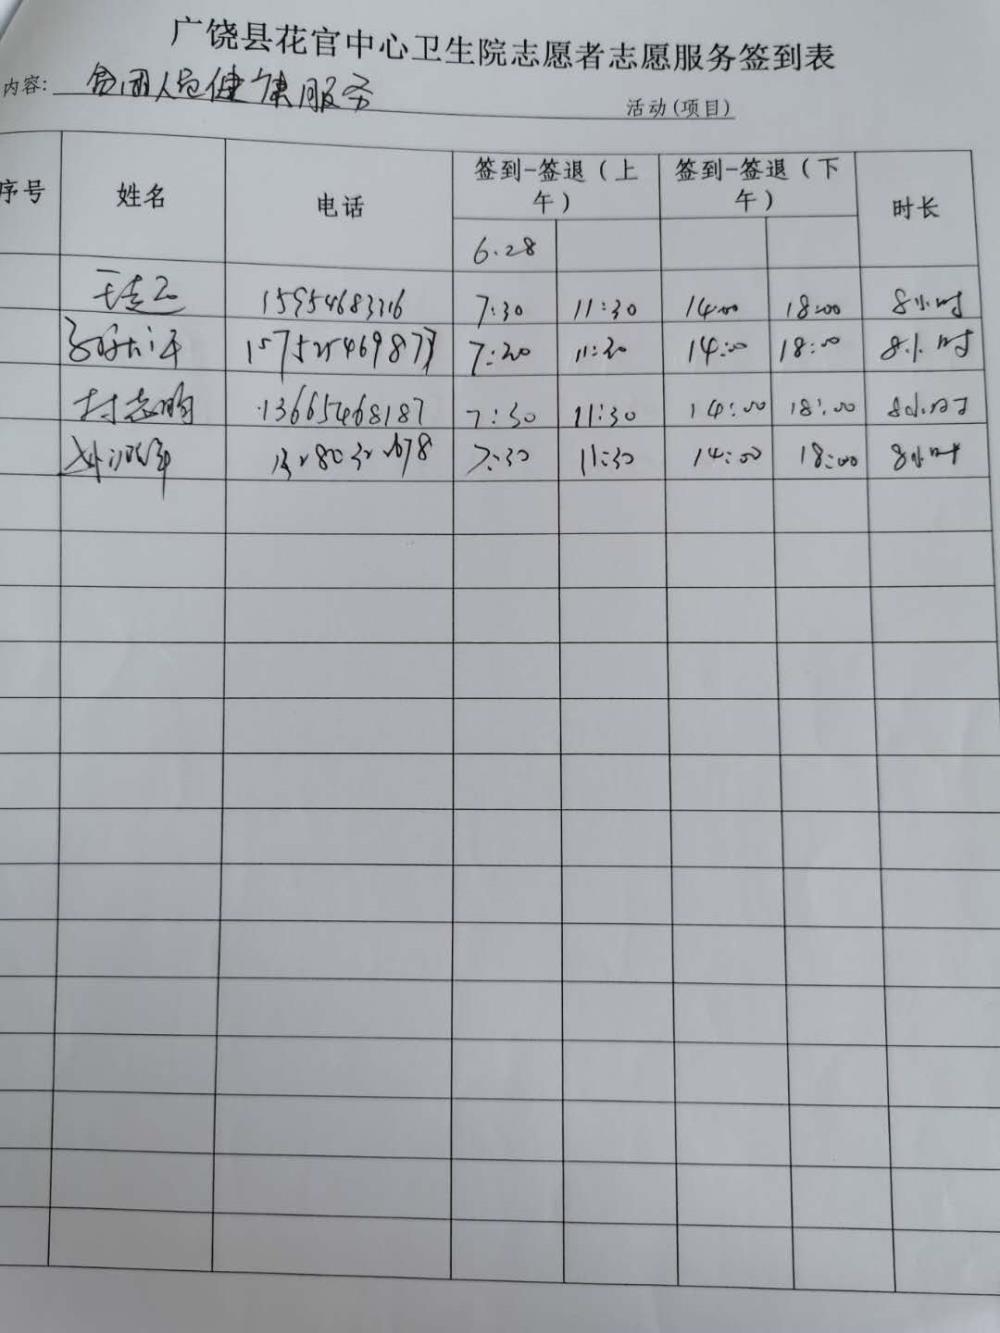 广饶县花官中心卫生院志愿者志愿服务签到表
内容: 贫困人员健康服务 活动(项目)
序号 姓名 电话 签到-签退（上午） 签到-签退（下午） 时长
6.28
15954683316 7:30 11:30 14:00 18:00 8小时
7:30 11:30 14:00 18:00 8小时
13665468187 7:30 11:30 14:00 18:00 8小时
7:30 11:30 14:00 18:00 8小时